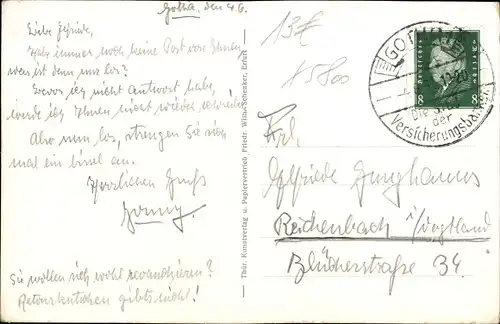 Gotha, den 4.6.
Liebe Elfriede,
Habe immer noch keine Post von Ihnen,
was ist denn nur los?
Bevor ich nicht Antwort habe,
werde ich Ihnen nicht wieder schreiben.
Also nun los, strengen Sie sich
mal ein bissel an.
Herzlichen Gruß
Sie wollen sich wohl revanchieren?
Retourkutschen gibts nicht!
Thür. Kunstverlag u. Papiervertrieb Friedr. Wilh. Schenker, Erfurt
13€
GOTHA
12-20
Die Stadt
der
Versicherungsbanken
8 8
Frl.
Elfriede Junghanns
Reichenbach i/Vogtland
Blücherstraße 34.